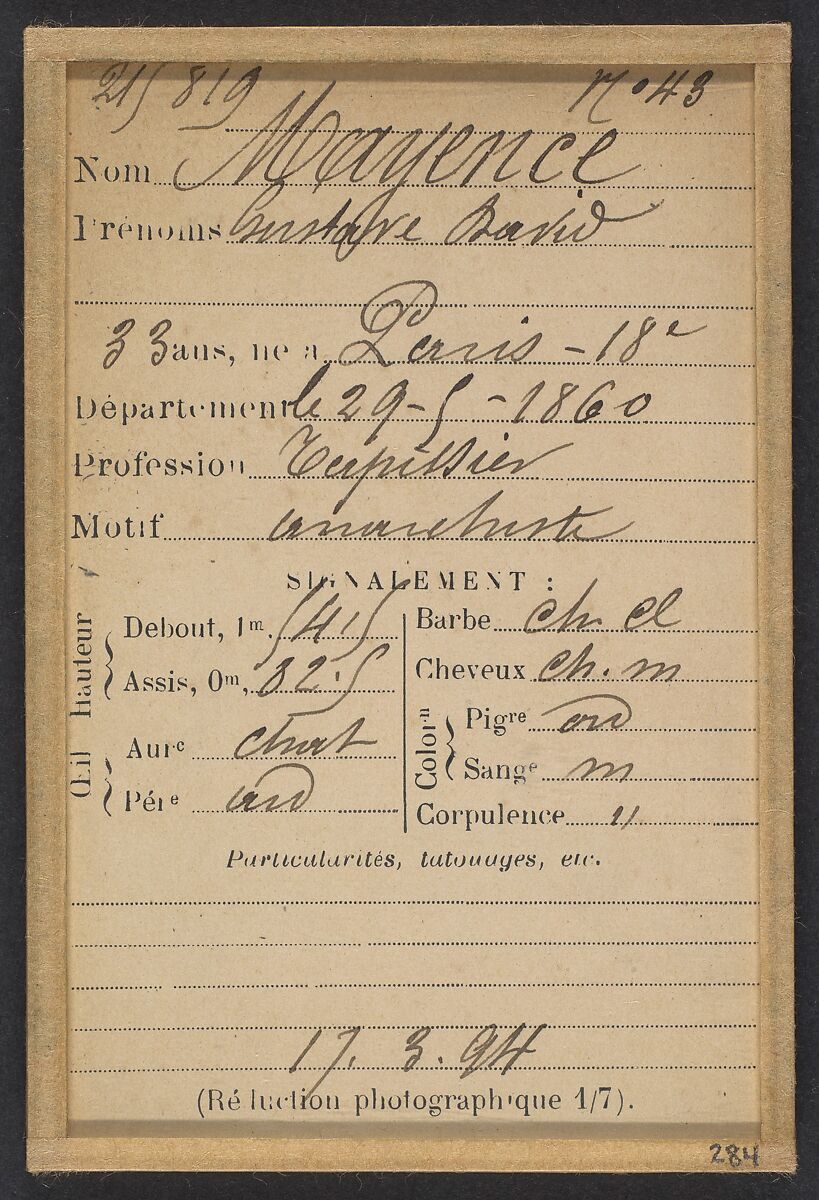 215819 N° 43
Nom Mayence
Prénoms Gustave David
33 ans, né à Paris - 18e
Département le 29-5-1860
Profession Tapissier
Motif anarchiste
SIGNALEMENT :
Hauteur
Debout, 1m. 54.5
Assis, 0m, 82.5
Œil
Aure chat
Pére ard
Barbe ch. cl
Cheveux ch. m
Colorn
Pigre ord
Sange m
Corpulence "
Particularités, tatouages, etc.
17. 3. 94
(Réduction photographique 1/7).
284